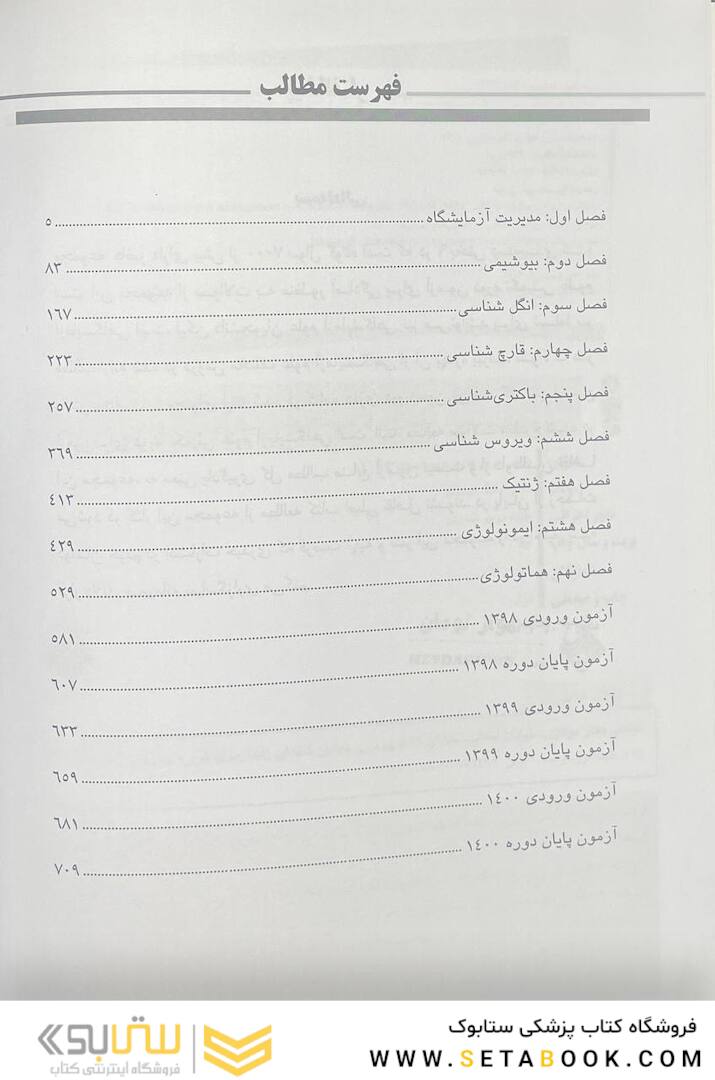 فهرست مطالب
فصل اول: مدیریت آزمایشگاه ........ ۵
فصل دوم: بیوشیمی ........ ۸۳
فصل سوم: انگل شناسی ........ ۱۶۷
فصل چهارم: قارچ شناسی ........ ۲۲۳
فصل پنجم: باکتری‌شناسی ........ ۲۵۷
فصل ششم: ویروس شناسی ........ ۳۶۹
فصل هفتم: ژنتیک ........ ٤۱۳
فصل هشتم: ایمونولوژی ........ ٤۲۹
فصل نهم: هماتولوژی ........ ۵۲۹
آزمون ورودی ۱۳۹۸ ........ ۵۸۱
آزمون پایان دوره ۱۳۹۸ ........ ٦۰۷
آزمون ورودی ۱۳۹۹ ........ ٦۳۳
آزمون پایان دوره ۱۳۹۹ ........ ٦۵۹
آزمون ورودی ۱٤۰۰ ........ ٦۸۱
آزمون پایان دوره ۱٤۰۰ ........ ۷۰۹
فروشگاه کتاب پزشکی ستابوک
WWW.SETABOOK.COM
ستابوک
فروشگاه اینترنتی کتاب